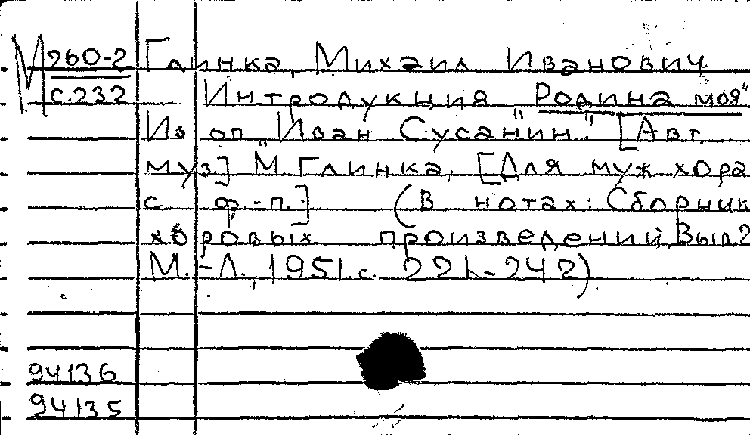 М 260-2 Глинка, Михаил Иванович
с.232 Интродукция "Родина моя"
Из оп. "Иван Сусанин." [Авт.
муз.] М. Глинка, [Для муж. хора
с ф.-п.] (В нотах: Сборник
хоровых произведений, Вып. 2
М.-Л., 1951. с. 221-242)
94136
94135